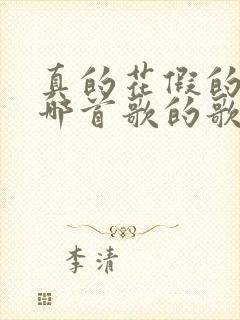 真的花假的
哪首歌的歌
李清